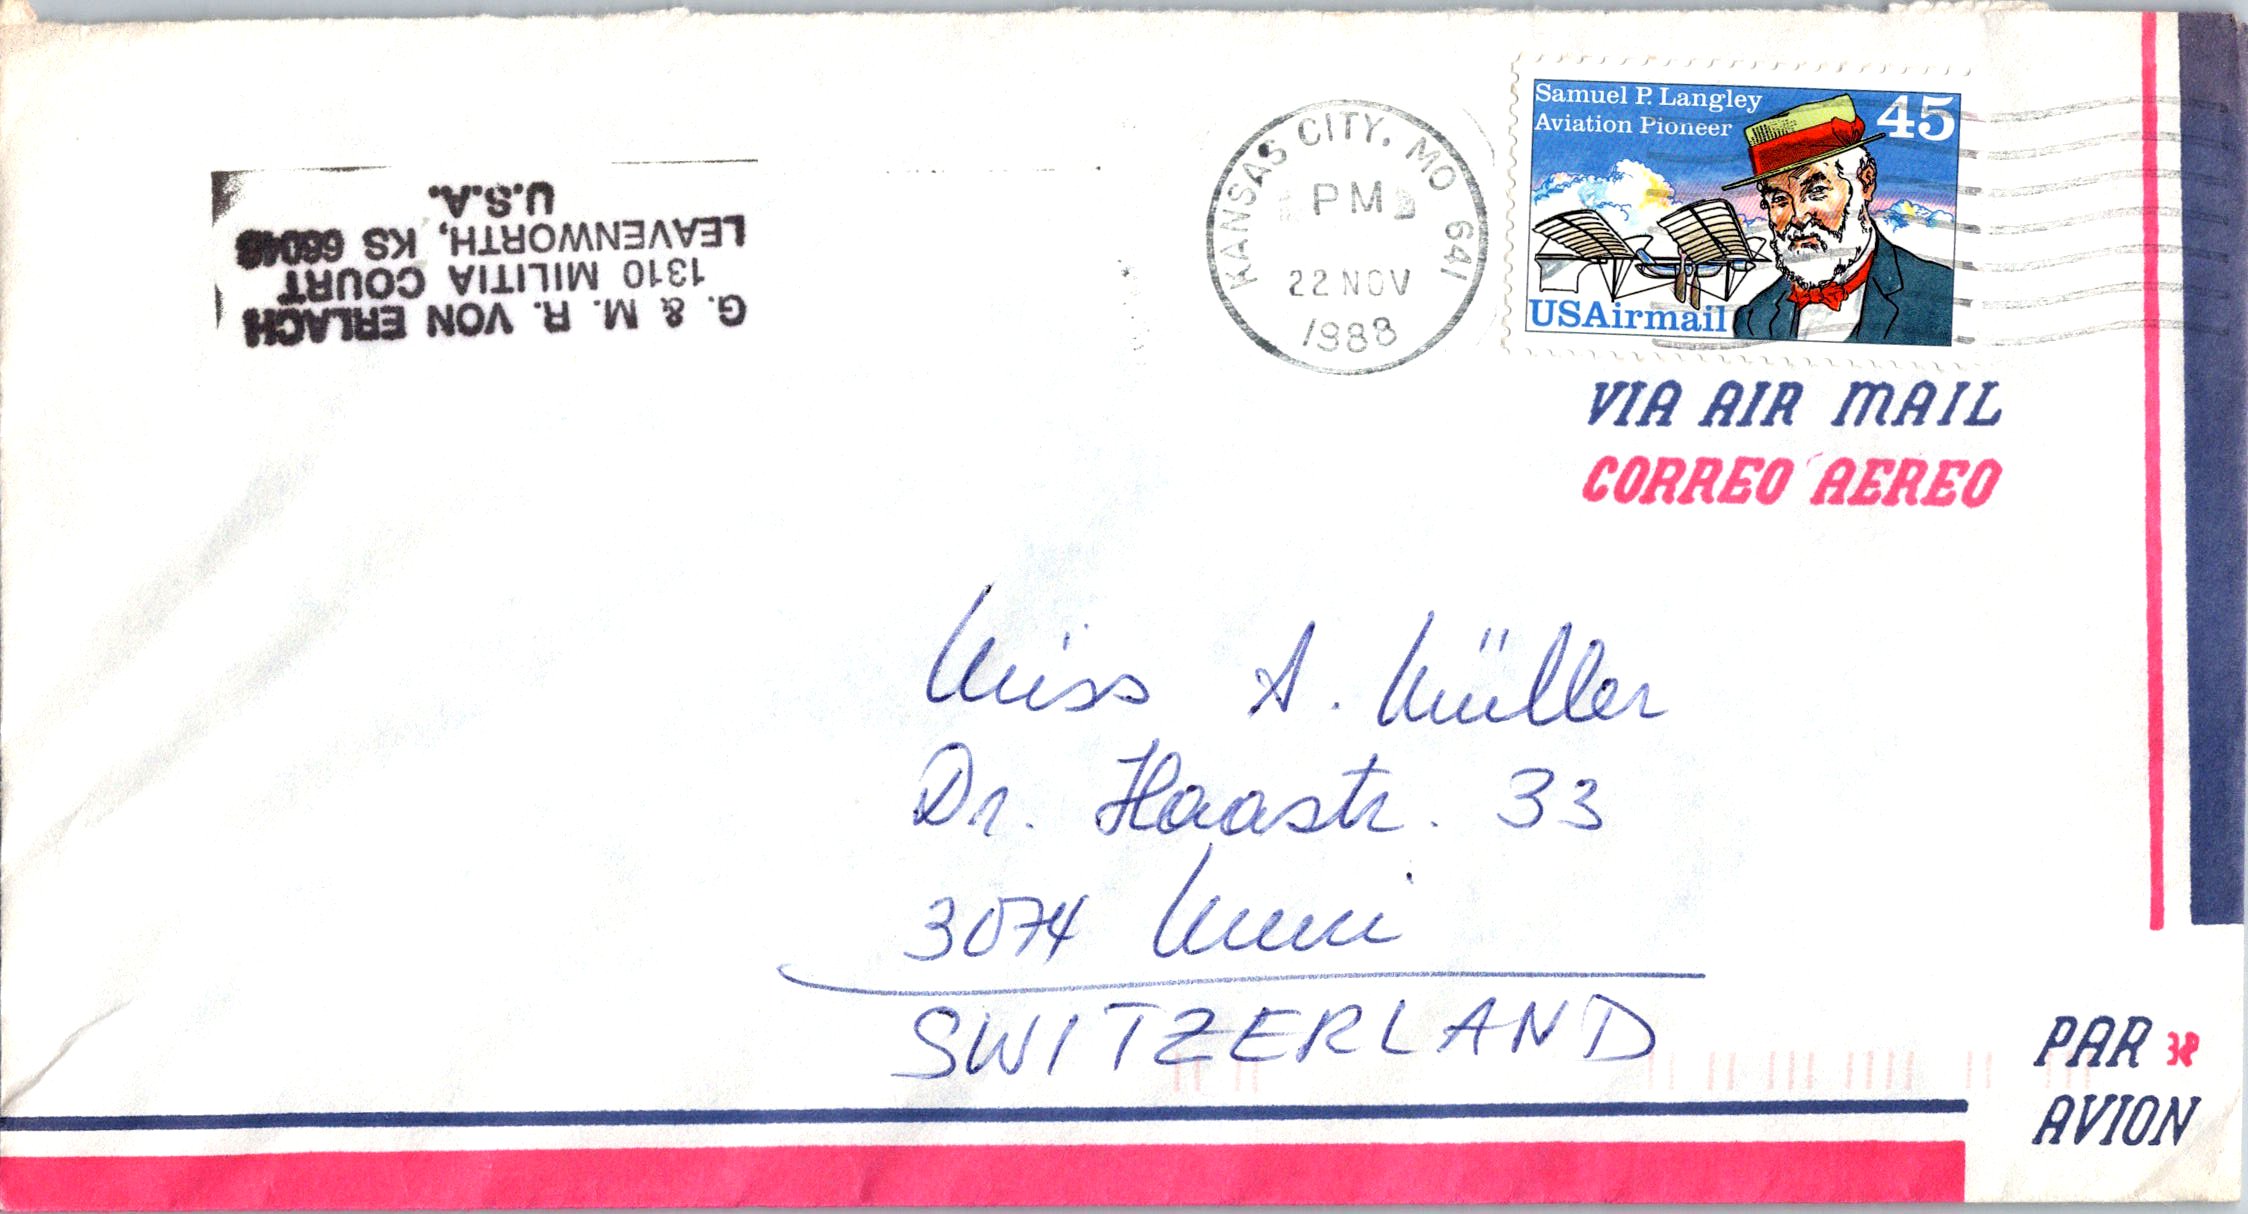 G. & M. R. VON ERLACH
1310 MILITIA COURT
LEAVENWORTH, KS 66048
U.S.A.
KANSAS CITY, MO 641
PM
22 NOV
1988
Samuel P. Langley
Aviation Pioneer
45
USAirmail
VIA AIR MAIL
CORREO AEREO
Miss A. Müller
Dr. Haastr. 33
3074 Muri
SWITZERLAND
PAR
AVION